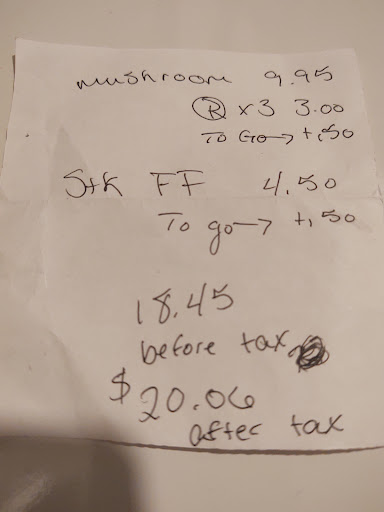 mushroom 9.95
Ⓡ x3 3.00
TO GO → +,50
Stk FF 4.50
To go → +,50
18.45
before tax
$20.06
after tax